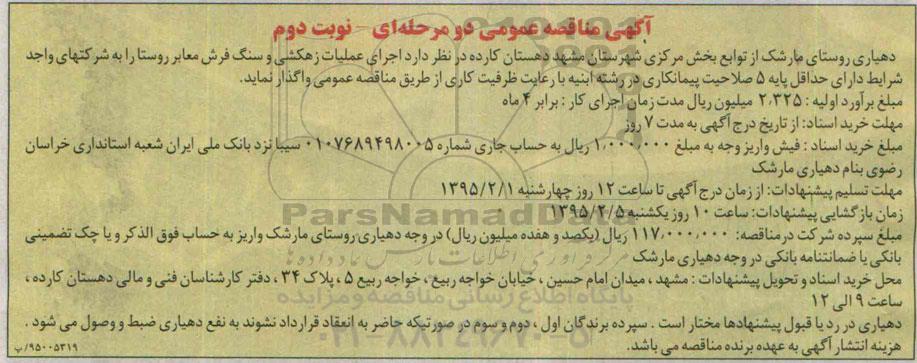 آگهی مناقصه عمومی دو مرحله‌ای - نوبت دوم
دهیاری روستای مارشک از توابع بخش مرکزی شهرستان مشهد دهستان کارده در نظر دارد اجرای عملیات زهکشی و سنگ فرش معابر روستا را به شرکتهای واجد
شرایط دارای حداقل پایه ۵ صلاحیت پیمانکاری در رشته ابنیه با رعایت ظرفیت کاری از طریق مناقصه عمومی واگذار نماید.
مبلغ برآورد اولیه : ۲،۳۲۵ میلیون ریال مدت زمان اجرای کار : برابر ۴ ماه
مهلت خرید اسناد: از تاریخ درج آگهی به مدت ۷ روز
مبلغ خرید اسناد : فیش واریز وجه به مبلغ ۱،۰۰۰،۰۰۰ ریال به حساب جاری شماره ۰۱۰۷۶۸۹۴۹۸۰۰۵ سیبا نزد بانک ملی ایران شعبه استانداری خراسان
رضوی بنام دهیاری مارشک
مهلت تسلیم پیشنهادات: از زمان درج آگهی تا ساعت ۱۲ روز چهارشنبه ۱۳۹۵/۲/۱
زمان بازگشایی پیشنهادات: ساعت ۱۰ روز یکشنبه ۱۳۹۵/۲/۵
ParsNamadData
مبلغ سپرده شرکت درمناقصه: ۱۱۷،۰۰۰،۰۰۰ ریال (یکصد و هفده میلیون ریال) در وجه دهیاری روستای مارشک واریز به حساب فوق الذکر و یا چک تضمینی
بانکی یا ضمانتنامه بانکی در وجه دهیاری مارشک
مرکز فرآوری اطلاعات پارس نماد داده ها
محل خرید اسناد و تحویل پیشنهادات : مشهد ، میدان امام حسین ، خیابان خواجه ربیع ، خواجه ربیع ۵ ، پلاک ۳۴ ، دفتر کارشناسان فنی و مالی دهستان کارده ،
ساعت ۹ الی ۱۲
پایگاه اطلاع رسانی مناقصه و مزایده
دهیاری در رد یا قبول پیشنهادها مختار است . سپرده برندگان اول ، دوم و سوم در صورتیکه حاضر به انعقاد قرارداد نشوند به نفع دهیاری ضبط و وصول می شود .
هزینه انتشار آگهی به عهده برنده مناقصه می باشد.
۰۲۱-۸۸۳۴۹۶۷۰-۵
۹۵۰۰۵۳۱۹/پ